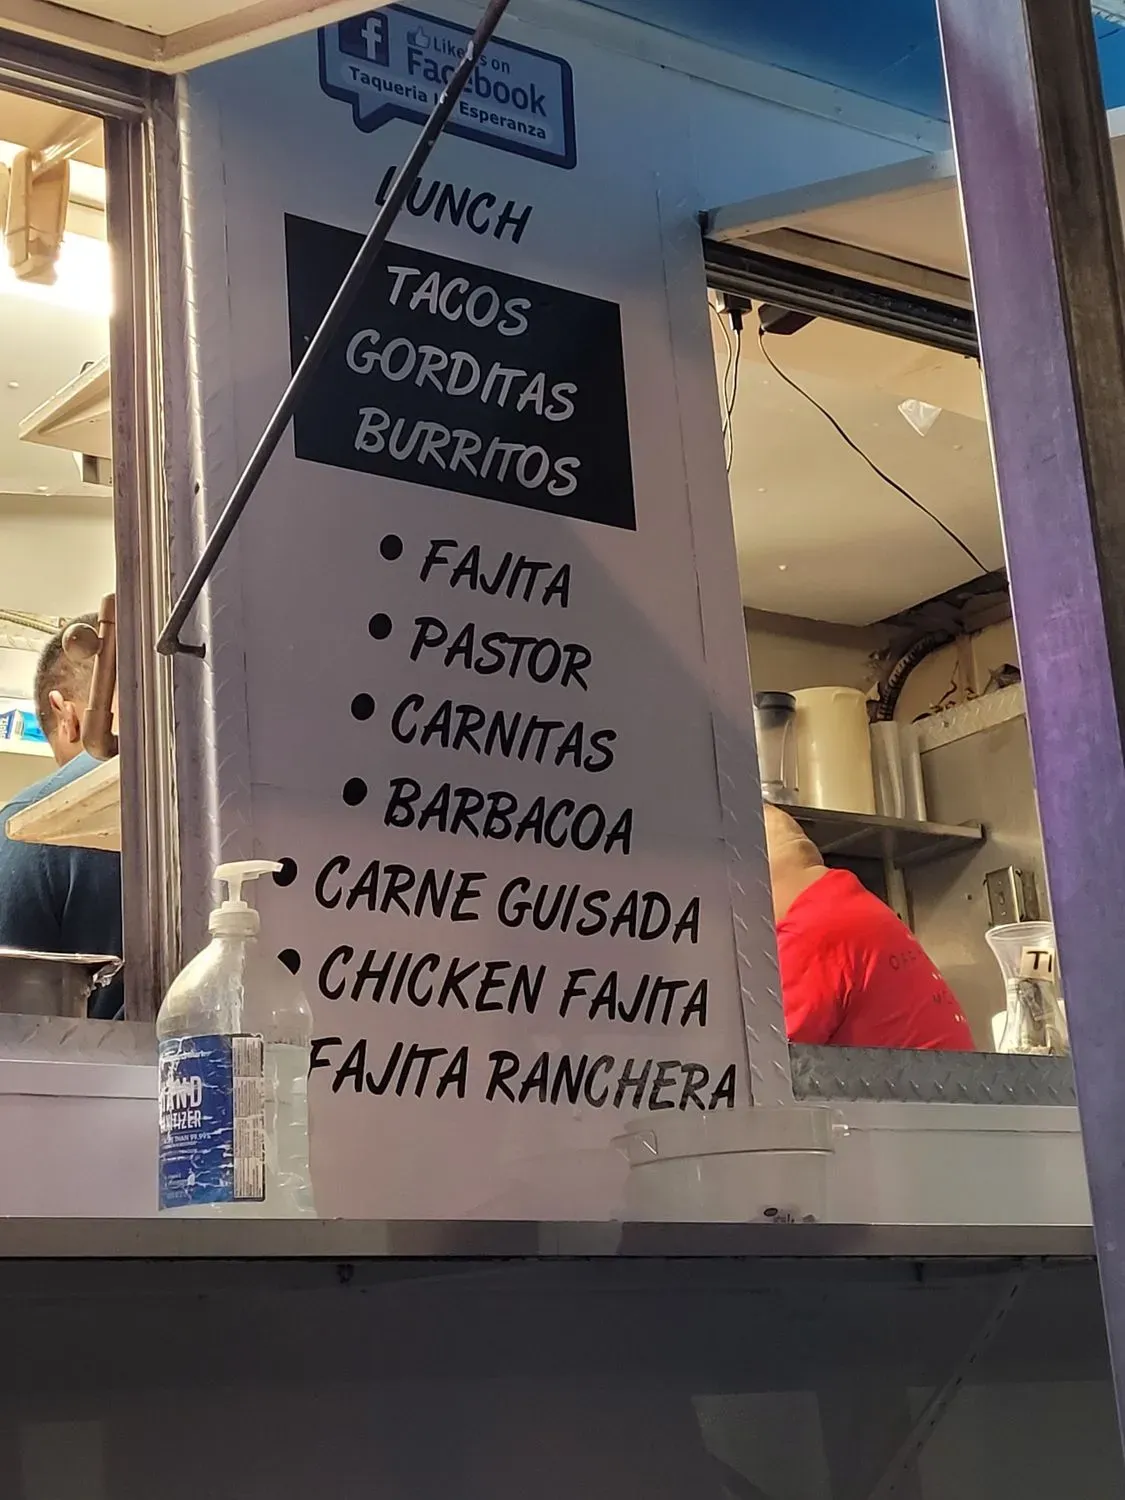 f
Like Us on
Facebook
Taqueria la Esperanza
LUNCH
TACOS
GORDITAS
BURRITOS
• FAJITA
• PASTOR
• CARNITAS
• BARBACOA
• CARNE GUISADA
• CHICKEN FAJITA
FAJITA RANCHERA